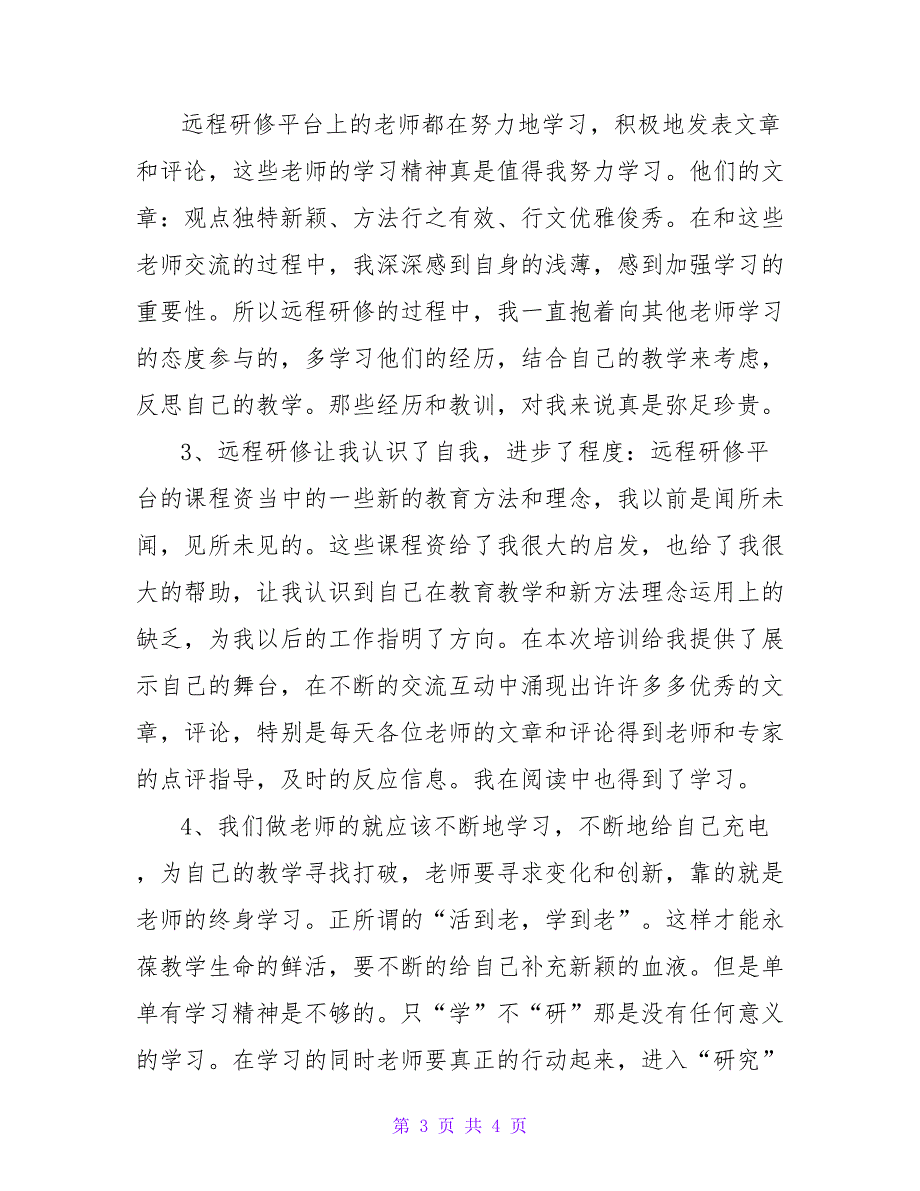 远程研修平台上的老师都在努力地学习，积极地发表文章
和评论，这些老师的学习精神真是值得我努力学习。他们的文
章：观点独特新颖、方法行之有效、行文优雅俊秀。在和这些
老师交流的过程中，我深深感到自身的浅薄，感到加强学习的
重要性。所以远程研修的过程中，我一直抱着向其他老师学习
的态度参与的，多学习他们的经历，结合自己的教学来考虑，
反思自己的教学。那些经历和教训，对我来说真是弥足珍贵。
3、远程研修让我认识了自我，进步了程度：远程研修平
台的课程资当中的一些新的教育方法和理念，我以前是闻所未
闻，见所未见的。这些课程资给了我很大的启发，也给了我很
大的帮助，让我认识到自己在教育教学和新方法理念运用上的
缺乏，为我以后的工作指明了方向。在本次培训给我提供了展
示自己的舞台，在不断的交流互动中涌现出许许多多优秀的文
章，评论，特别是每天各位老师的文章和评论得到老师和专家
的点评指导，及时的反应信息。我在阅读中也得到了学习。
4、我们做老师的就应该不断地学习，不断地给自己充电
，为自己的教学寻找打破，老师要寻求变化和创新，靠的就是
老师的终身学习。正所谓的“活到老，学到老”。这样才能永
葆教学生命的鲜活，要不断的给自己补充新颖的血液。但是单
单有学习精神是不够的。只“学”不“研”那是没有任何意义
的学习。在学习的同时老师要真正的行动起来，进入“研究”
第 3 页 共 4 页